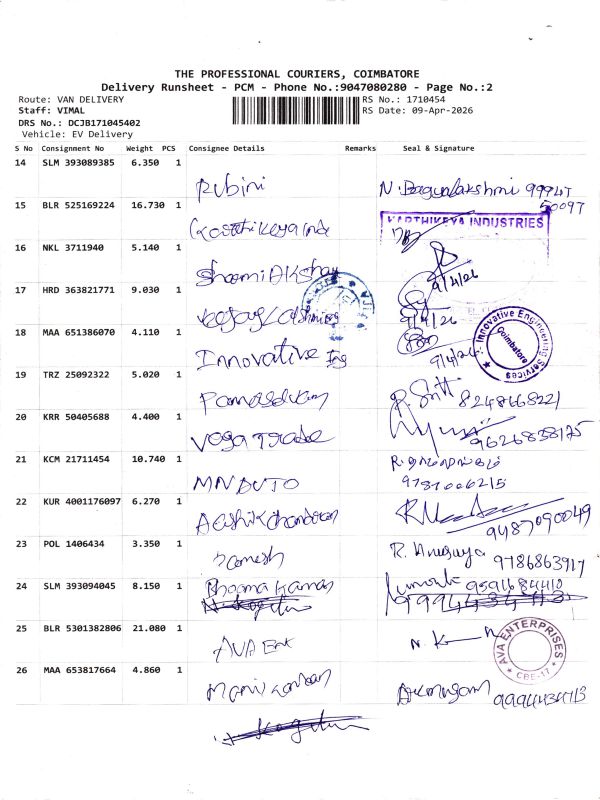 THE PROFESSIONAL COURIERS, COIMBATORE
Delivery Runsheet - PCM - Phone No.:9047080280 - Page No.:2
Route: VAN DELIVERY
Staff: VIMAL
DRS No.: DCJB171045402
Vehicle: EV Delivery
RS No.: 1710454
RS Date: 09-Apr-2026
S No Consignment No Weight PCS Consignee Details Remarks Seal & Signature
14 SLM 393089385 6.350 1
Rubini N. Bagyalakshmi 99947
50097
15 BLR 525169224 16.730 1
Karthikeya Ind
KARTHIKEYA INDUSTRIES
16 NKL 3711940 5.140 1
Shoomi Akshay
9/4/26
17 HRD 363821771 9.030 1
9/4/26
18 MAA 651386070 4.110 1
Innovative Eng
9/4/26
Innovative Engineering Services
Coimbatore
19 TRZ 25092322 5.020 1
8248668221
20 KRR 50405688 4.400 1
Vega Trade
9626838175
21 KCM 21711454 10.740 1
MN AUTO
9787006215
22 KUR 4001176097 6.270 1
9487090049
23 POL 1406434 3.350 1
Ramesh R. Anusuya 9786863917
24 SLM 393094045 8.150 1
9591684410
9994434713
25 BLR 5301382806 21.080 1
AVA Ent
AVA ENTERPRISES
CBE-17
26 MAA 653817664 4.860 1
Manikandan Arumugam 9994434713